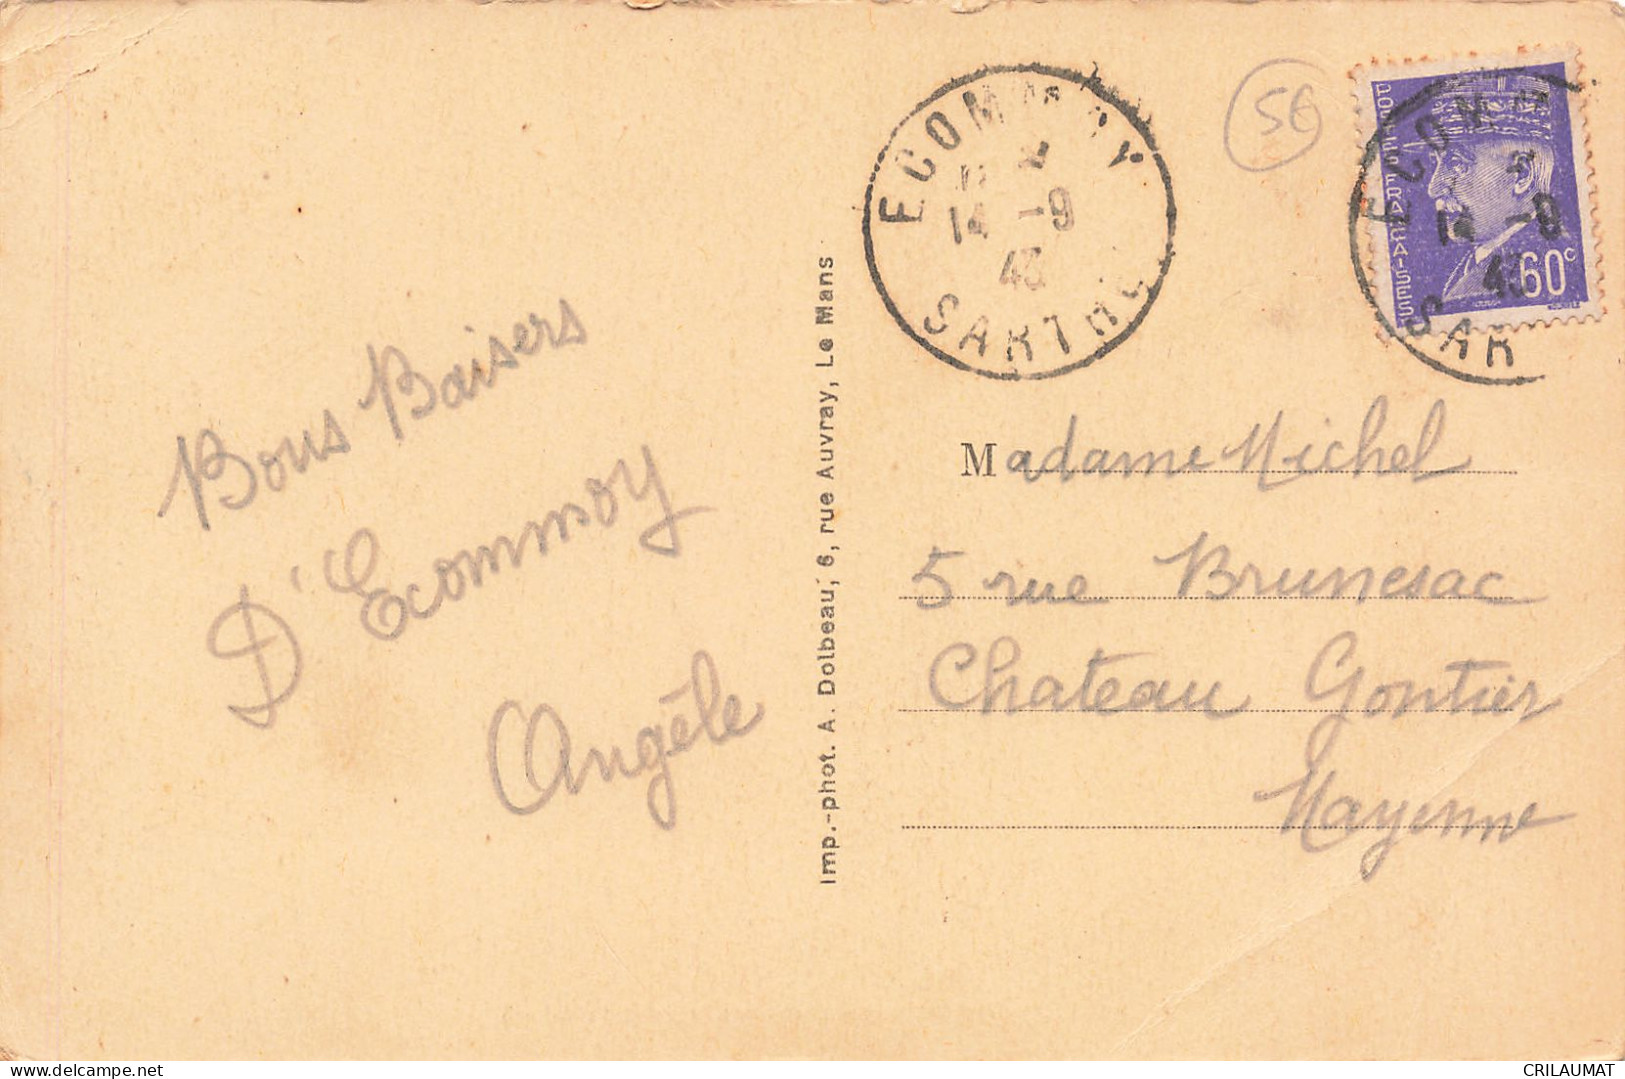 ECOMMOY
14 -9
43
SARTHE
56
POSTES FRANÇAISES
60c
ECOM
14 -9
43
SAR
Bons Baisers
D'Ecommoy
Angèle
Imp.-phot. A. Dolbeau, 6, rue Auvray, Le Mans
Madame Michel
5 rue Brunesac
Chateau Gontier
Mayenne
delcampe.net
CRILAUMAT